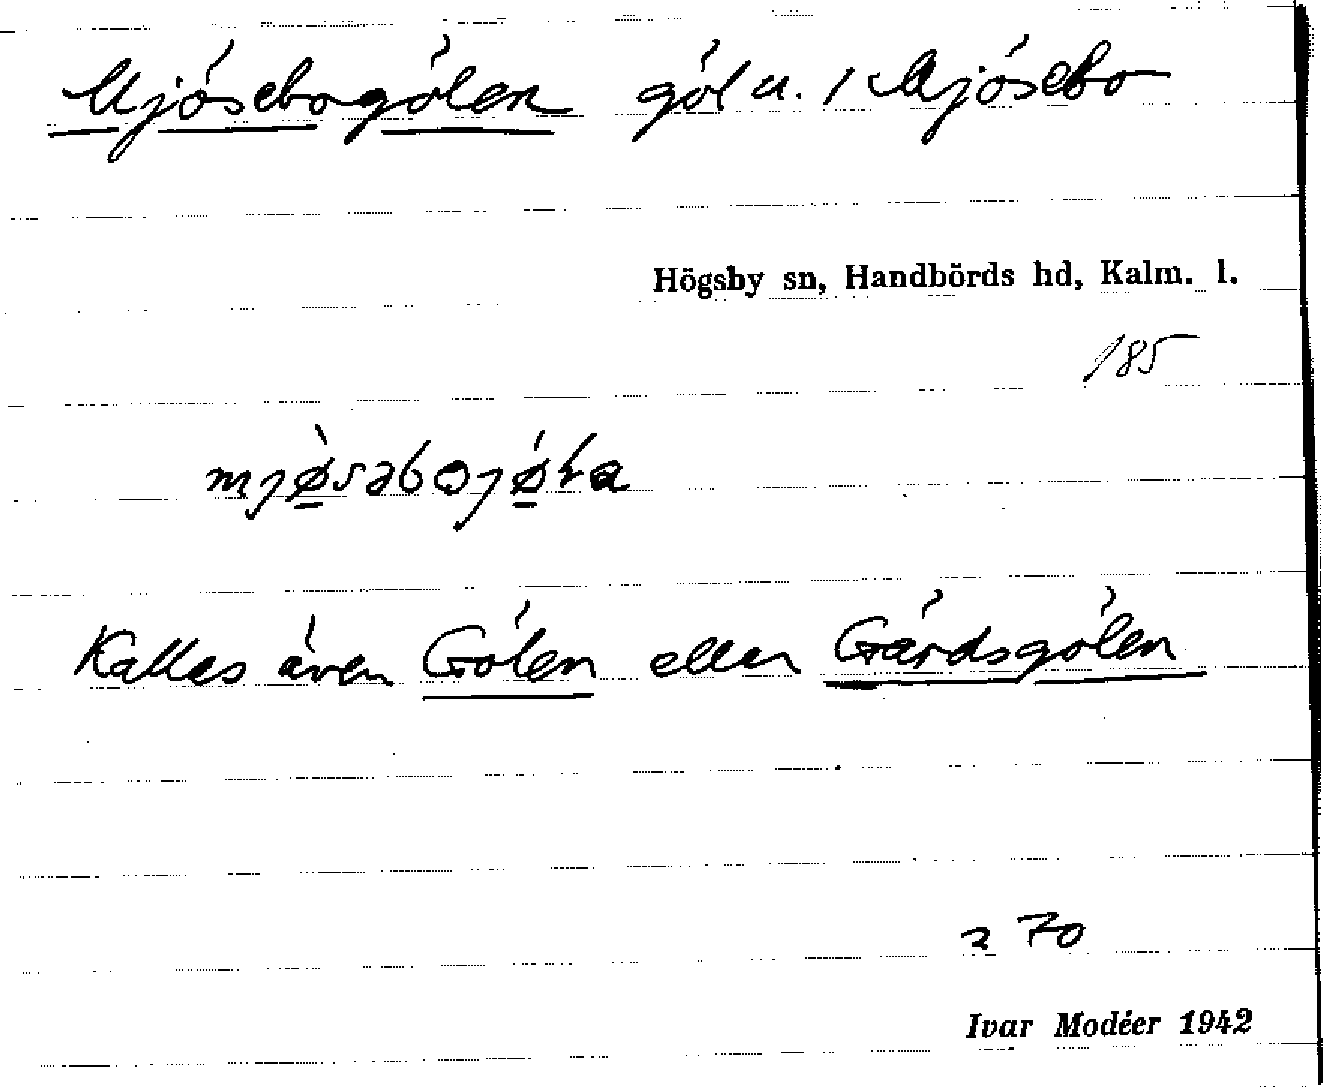 Mjösebogölen göl u. 1 Mjösebo
Högsby sn, Handbörds hd, Kalm. l.
185
Kallas även Gölen eller Gårdsgölen
270
Ivar Modéer 1942